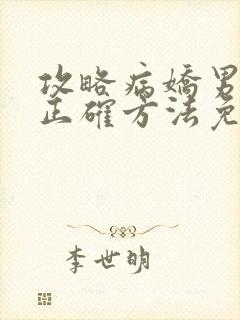 攻略病嬌男
正確方法免
李世明